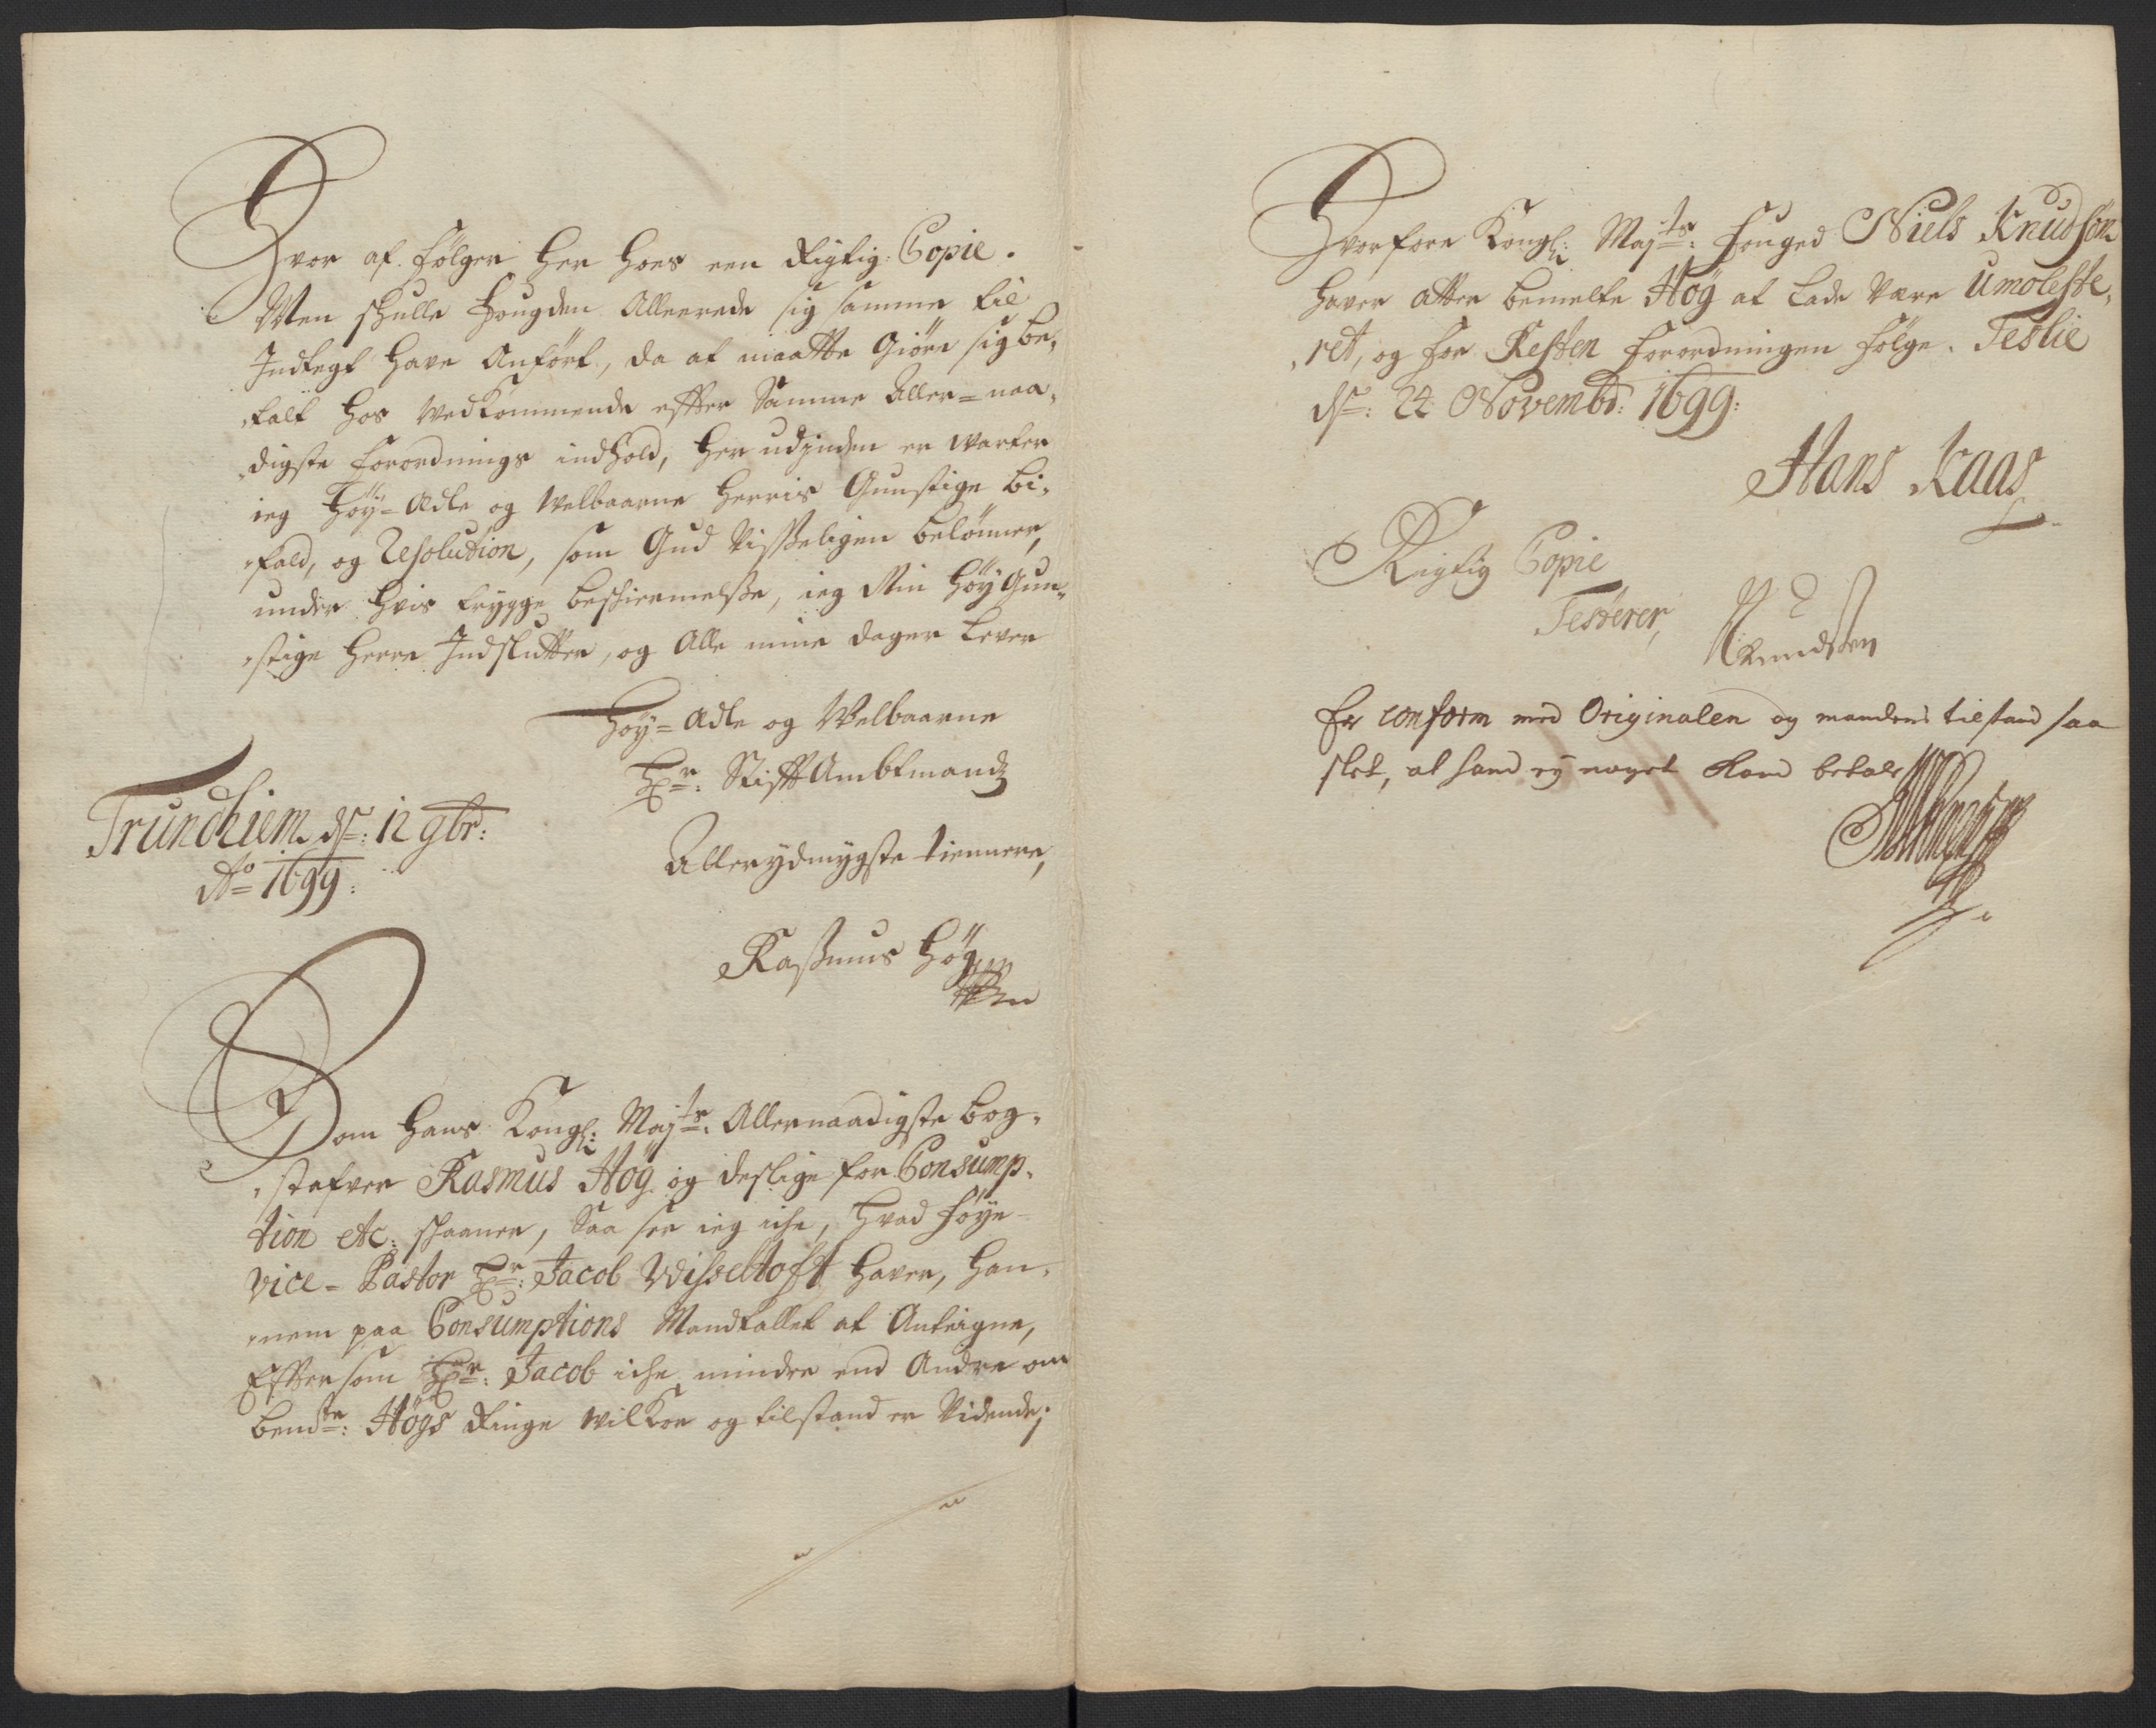 Hvor af følger her hoes een Rigtig: Copie.
Men skulle Fougden Allerede sig samme til
Indtegt have Anført, da at maatte Giøre sig be-
talt hos vedkommende effter Samme Aller=naa-
digste forordnings indhold, her udinden er warter
ieg Høy=Adle og Welbaarne Herris Gunstige bi-
fald, og Resolution, som Gud Visseligen belønner,
under hvis trygge beskiermelsse, ieg Min Høy Gun-
stige Herre Indslutter, og Alle mine dager Lever
Høy=Adle og Welbaarne
Hr: StifftAmbtmandz
Trundhiem ds: 12 9br:
Ao 1699:
Allerydmygste tiennere,
Rasmus Høg
Som Hans Kongl: Majts: Allernaadigste bog-
stafver Rasmus Høg og deslige for Consump-
tion etc: skaaner, Saa ser ieg iche, hvad føye
vice=Pastor Hr: Jacob Wisseltoft haver, han-
nem paa Consumptions Mandtallet at Anteigne,
Efftersom Hr: Jacob iche mindre end Andre om
bemte: Høgs Ringe wilkor og tilstand er Vidende;
Hvorfore Kongl: Majts: Fouged Niels Knudsøn
haver atter bemelte Høg at Lade være Umoleste-
ret, og for Resten forordningen følge. Teslie
ds: 24 Novembr: 1699:
Hans Kaas
Rigtig Copie
Testerer,
NKnudsen
Er conform med Originalen og mandens tilstand saa
slet, at hand ey noget kand betale